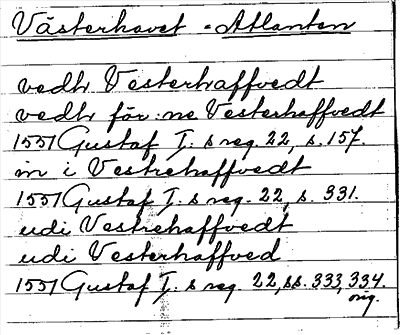 Västerhavet - Atlanten
vedh Vesterhaffvedt
vedh för:ne Vesterhaffvedt
1551 Gustaf I:s reg. 22, s. 157.
in i Vestrehaffvedt
1551 Gustaf I:s reg. 22, s. 331.
udi Vestrehaffvedt
udi Vesterhaffved
1551 Gustaf I:s reg. 22, ss. 333, 334.
orig.